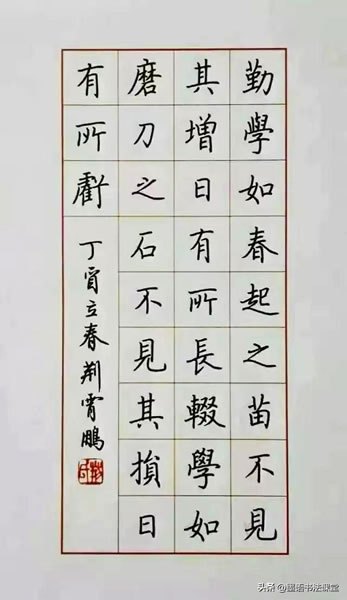 勤學如春起之苗不見
其增日有所長輟學如
磨刀之石不見其損日
有所虧
丁酉立春荆霄鵬
头条 @墨语书法课堂